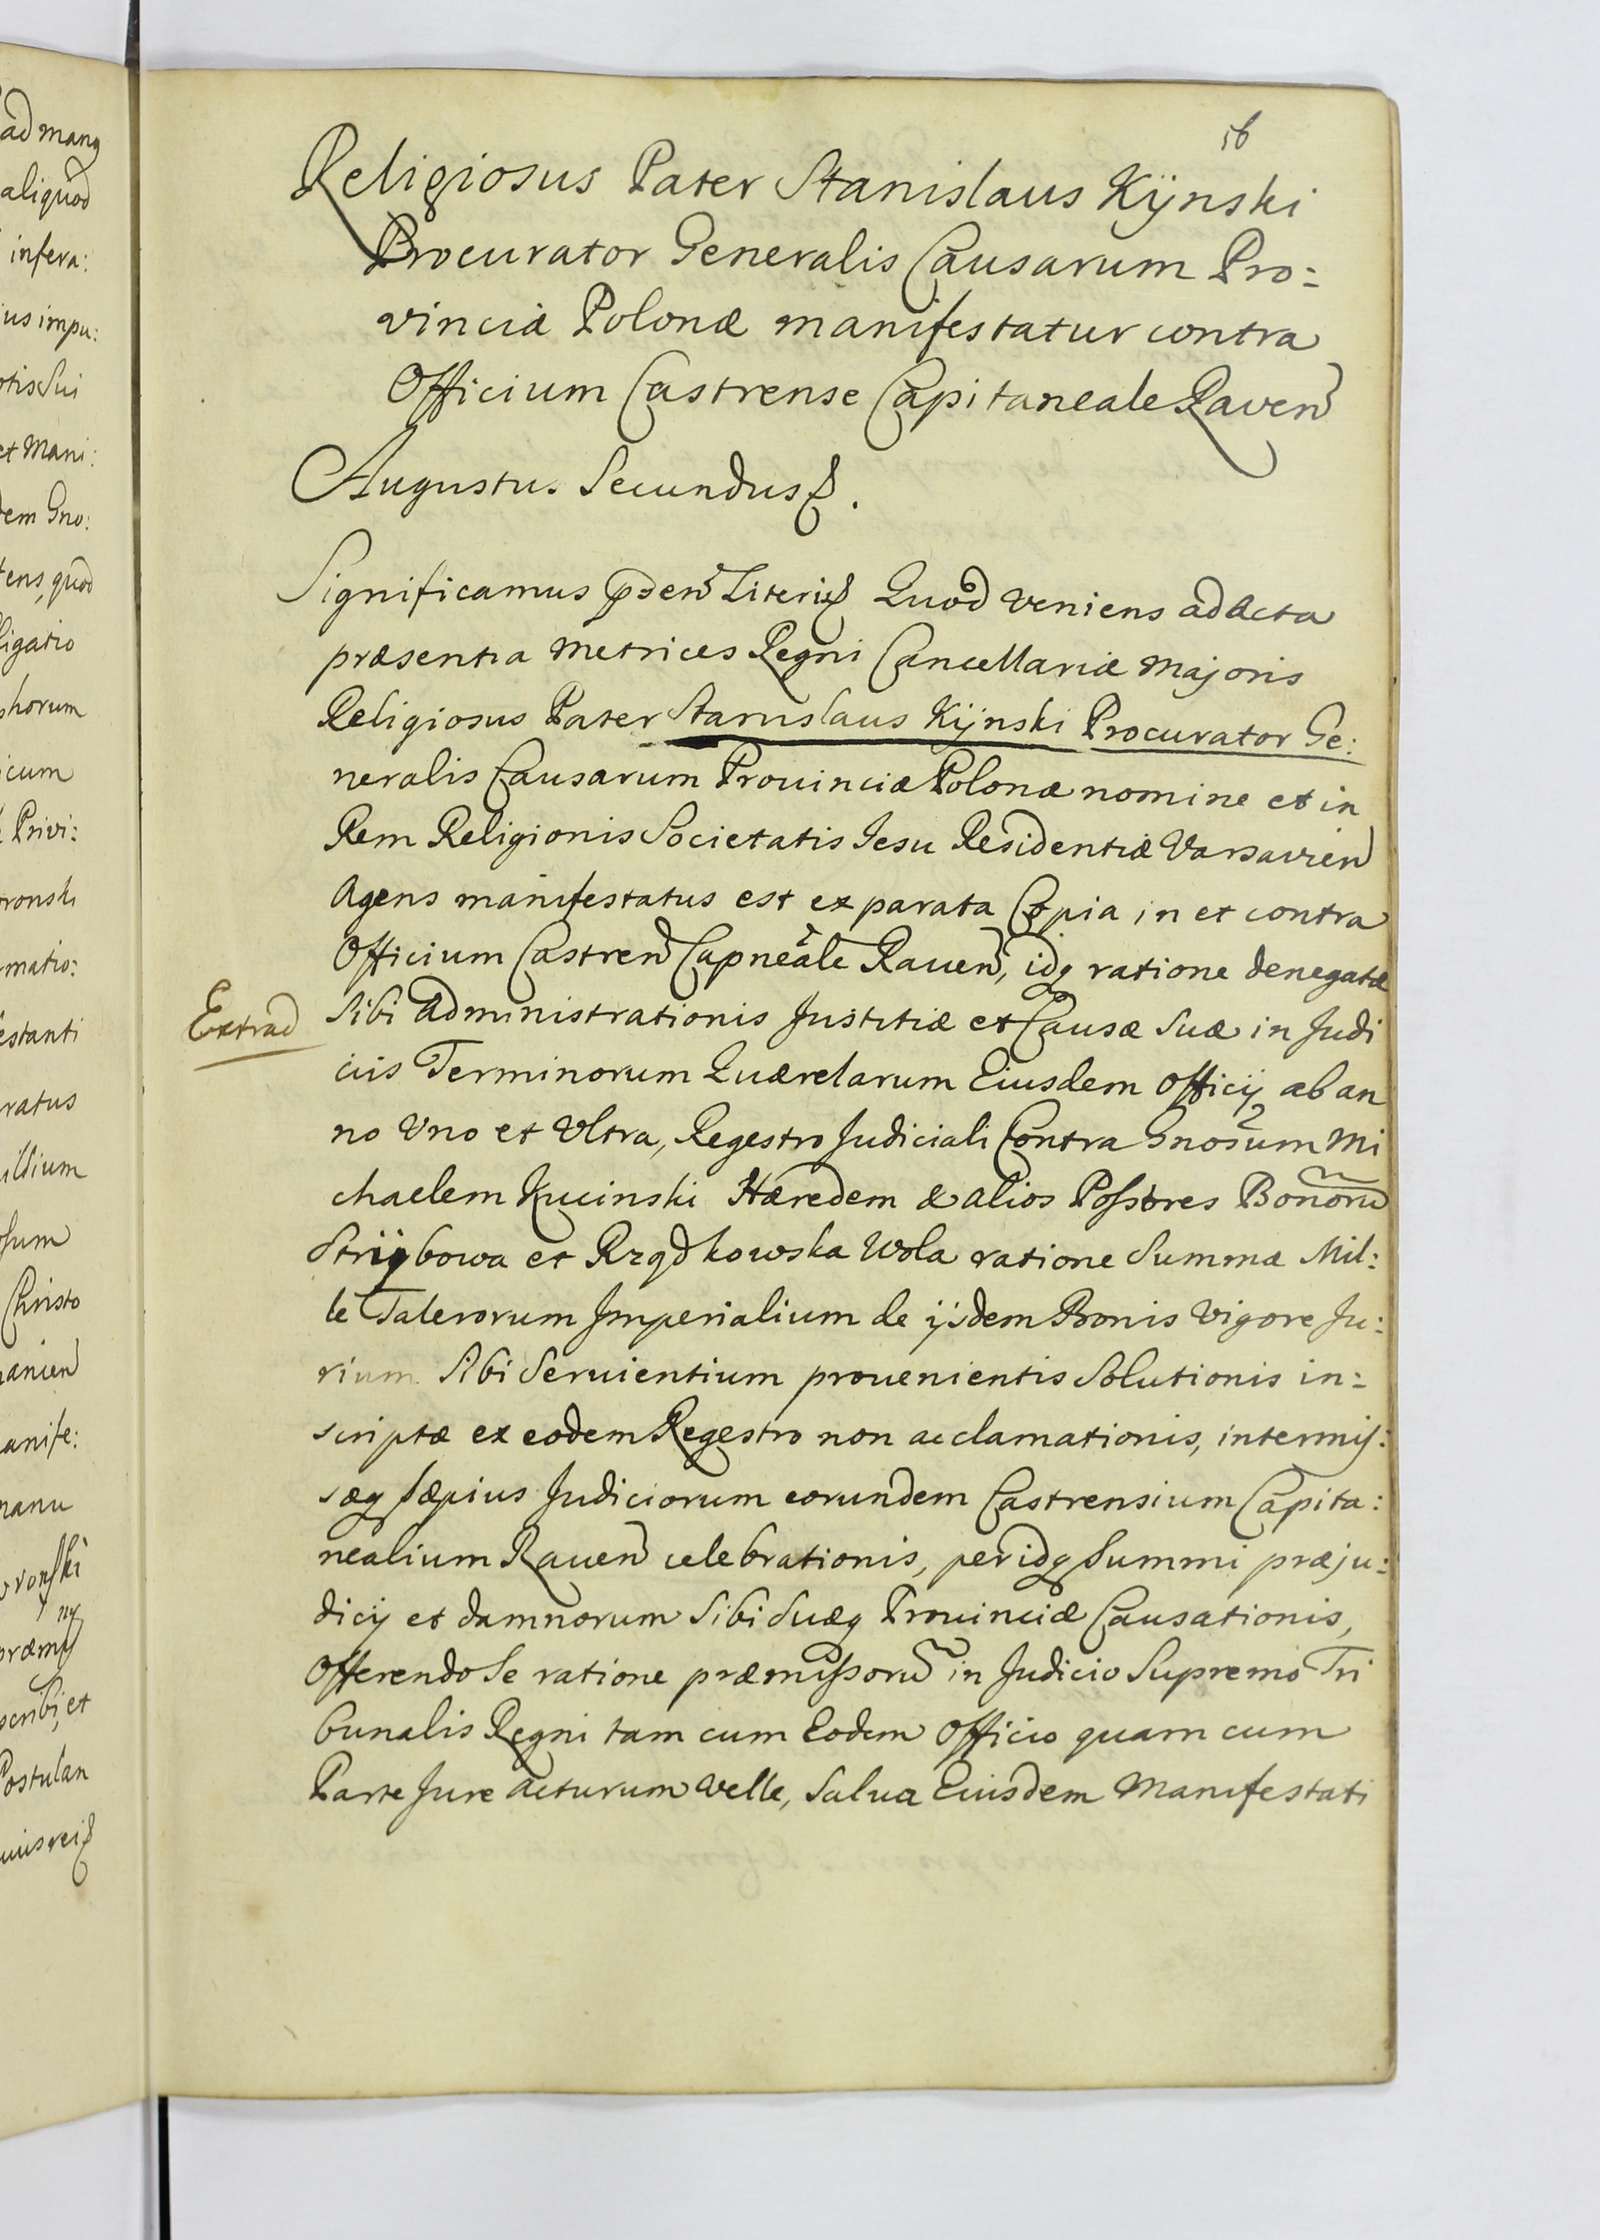 ad mang
aliquod
infera:
ius impu:
otis Sui
et Mani:
dem Gno:
tens, quod
ligatio
phorum
icum
Privi:
ronski
matio:
estanti
ratus
ilsium
osum
Christo
anien
anife:
manu
wronski
præmiss
scribi, et
Postulan
uius rei
56
Religiosus Pater Stanislaus Kÿnski
Procurator Generalis Causarum Pro=
vinciæ Polonæ manifestatur contra
Officium Castrense Capitaneale Raven
Augustus Secundus &.
Significamus pnden Literis Quod veniens ad Acta
præsentia Metrices Regni Cancellariæ Majoris
Religiosus Pater Stanislaus Kÿnski Procurator Ge:
neralis Causarum Prouinciæ Polonæ nomine et in
Rem Religionis Societatis Iesu Residentiæ Varsavien
Agens manifestatus est ex parata Copia in et contra
Officium Castren Capneale Rauen, idq ratione denegatæ
Extrad
Sibi Administrationis Justitiæ et Causæ Suæ in Judi
ciis Terminorum Quærelarum Eiusdem Officij, ab an
no Vno et Vltra, Regestro Judiciali Contra Gnosum Mi
chaelem Kucinski Hæredem & alios Possores Bonoru
Strÿbowa et Rządkowska Wola ratione Summæ Mil:
le Talerorum Imperialium de ijsdem Bonis Vigore Ju:
rium Sibi Seruientium prouenientis Solutionis in=
scriptæ ex eodem Regestro non acclamationis, intermis:
sæq sæpius Judiciorum eorundem Castrensium Capita:
nealium Rauen celebrationis, per idq Summi præju:
dicij et damnorum Sibi Suæq Prouinciæ Causationis,
Offerendo Se ratione præmissoru in Judicio Supremo Tri
bunalis Regni tam cum Eodem Officio quam cum
Parte Jure Acturum Velle, Salua Eiusdem Manifestati